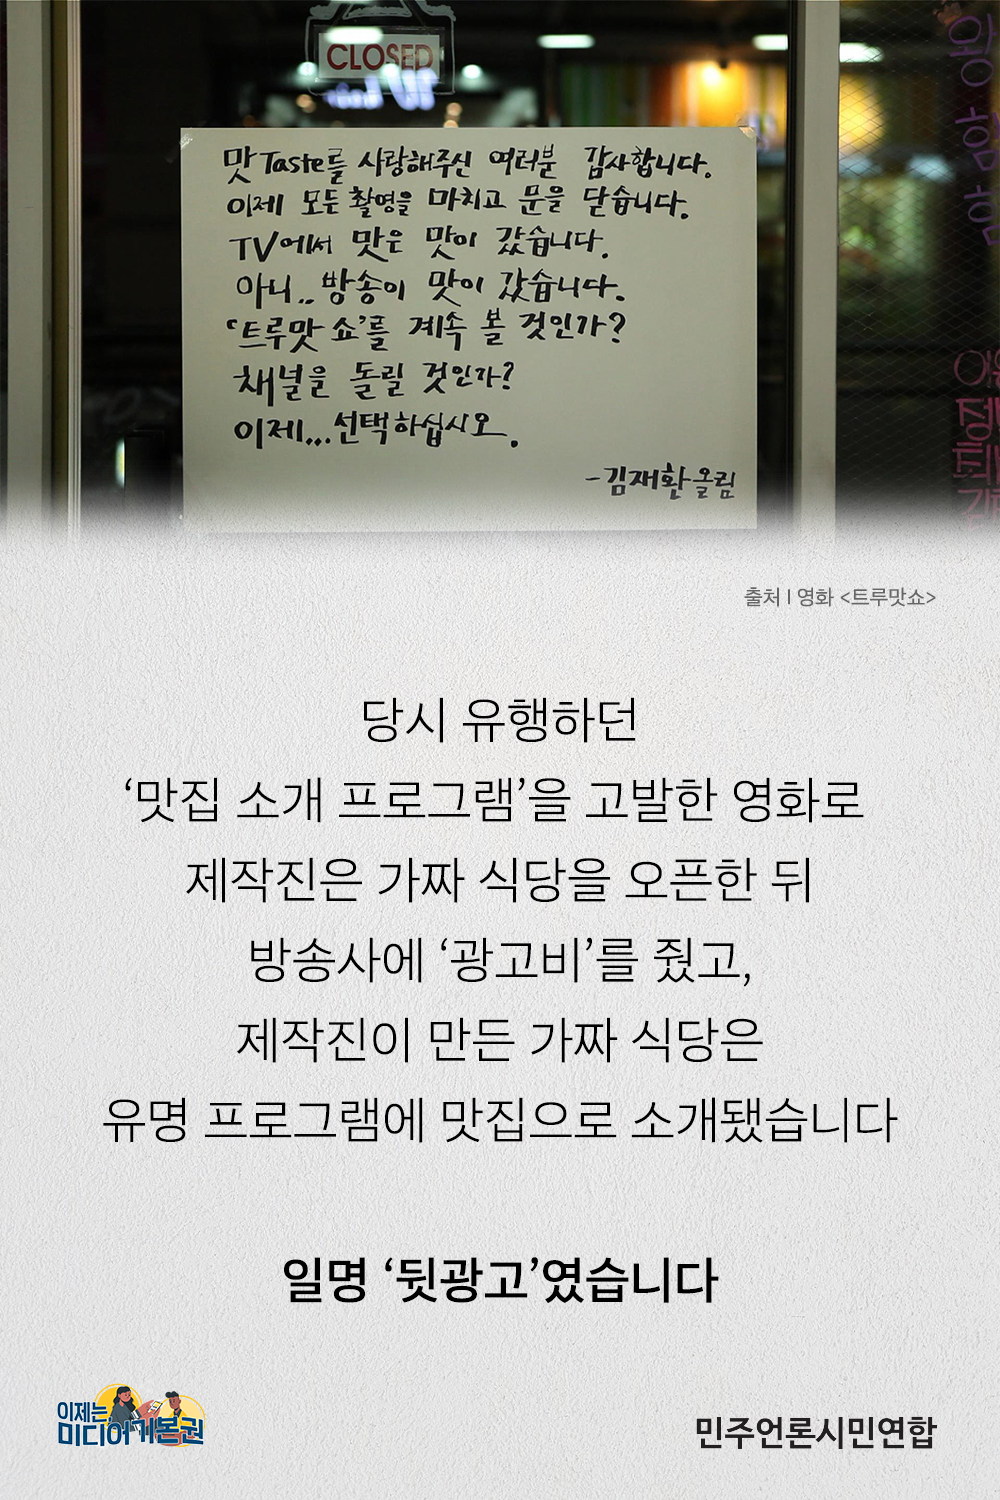 CLOSED
맛 Taste를 사랑해주신 여러분 감사합니다.
이제 모든 촬영을 마치고 문을 닫습니다.
TV에서 맛은 맛이 갔습니다.
아니.. 방송이 맛이 갔습니다.
‘트루맛 쇼’를 계속 볼 것인가?
채널을 돌릴 것인가?
이제... 선택하십시오.
-김재환 올림
왕
함
출처 | 영화 <트루맛쇼>
당시 유행하던
‘맛집 소개 프로그램’을 고발한 영화로
제작진은 가짜 식당을 오픈한 뒤
방송사에 ‘광고비’를 줬고,
제작진이 만든 가짜 식당은
유명 프로그램에 맛집으로 소개됐습니다
일명 ‘뒷광고’였습니다
이제는
미디어기본권
민주언론시민연합